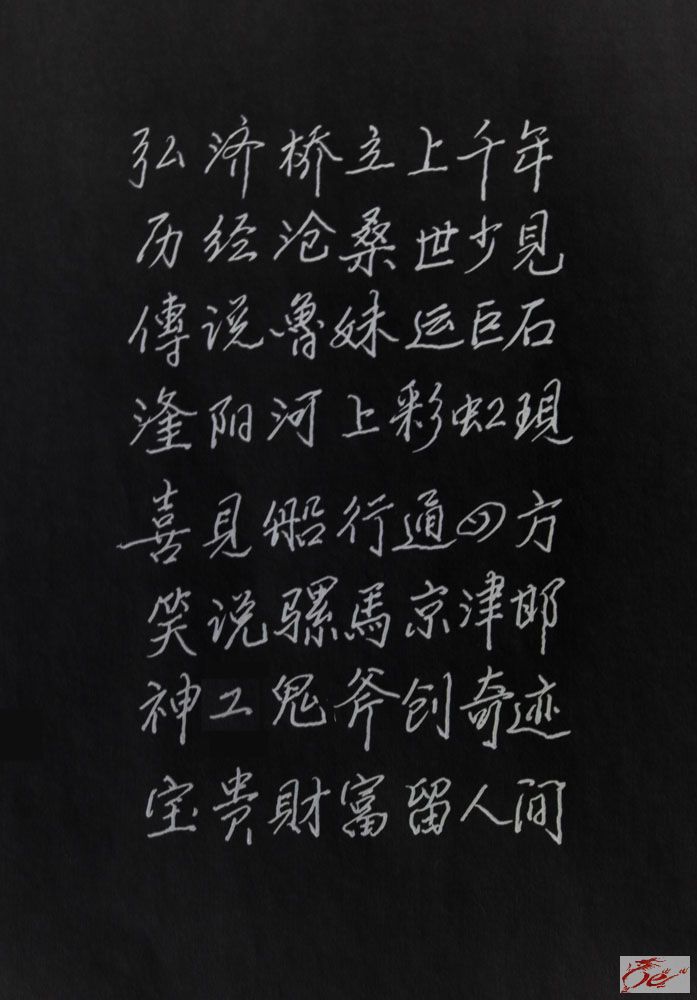 弘济桥立上千年
历经沧桑世少見
傳说魯妹运巨石
滏阳河上彩虹現
喜見船行通四方
笑说骡馬京津邯
神工鬼斧创奇迹
宝贵財富留人间